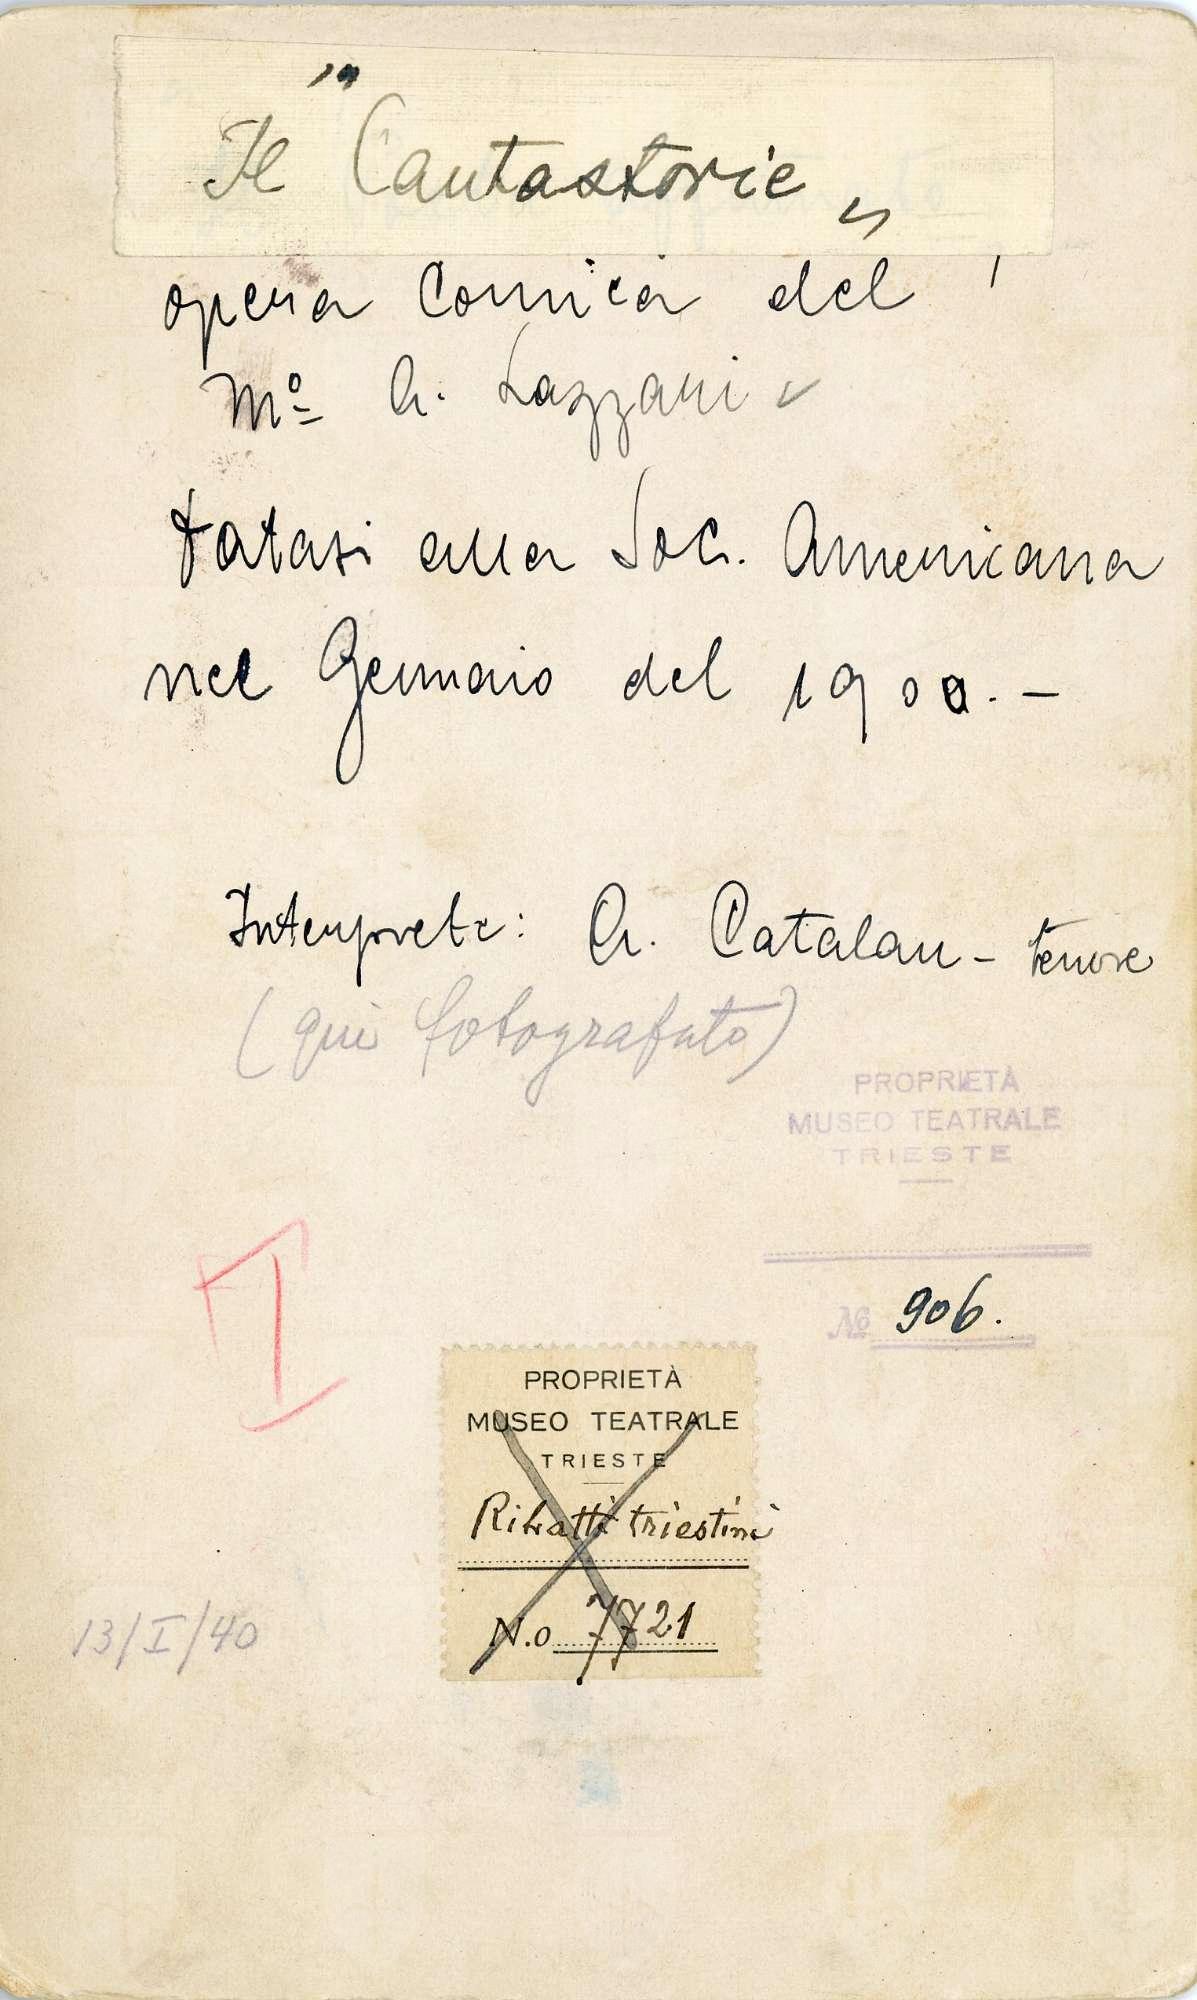 Il "Cantastorie„
opera comica del
Mº A. Lazzari
datasi alla Soc. Americana
nel Gennaio del 1900. –
Interprete: A. Catalan – tenore
(qui fotografato)
PROPRIETÀ
MUSEO TEATRALE
TRIESTE
I
№ 906.
PROPRIETÀ
MUSEO TEATRALE
TRIESTE
Ritratti triestini
N.o 7721
13/I/40